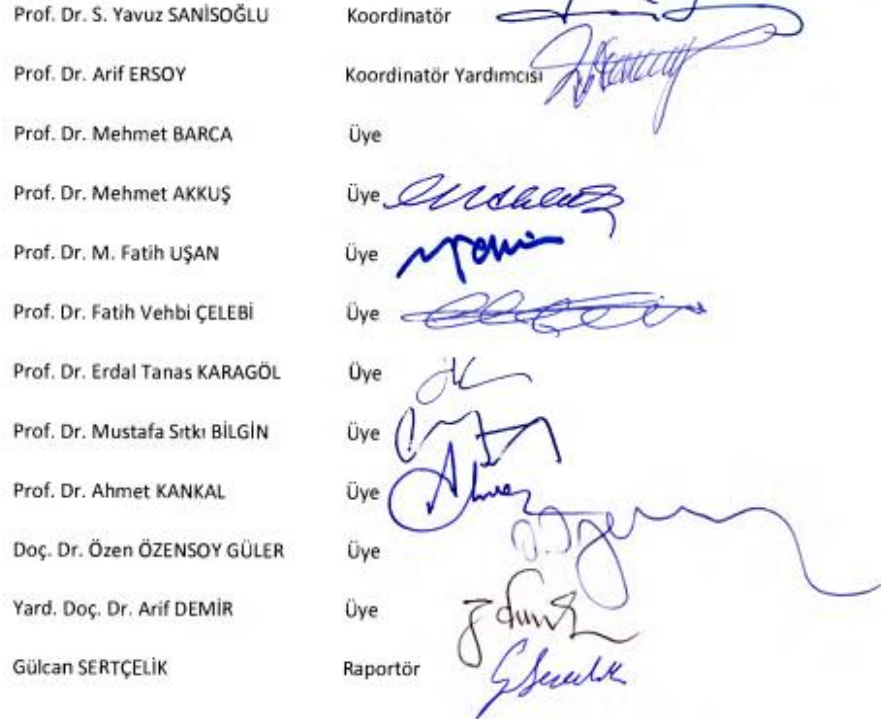 Prof. Dr. S. Yavuz SANİSOĞLU Koordinatör
Prof. Dr. Arif ERSOY Koordinatör Yardımcısı
Prof. Dr. Mehmet BARCA Üye
Prof. Dr. Mehmet AKKUŞ Üye
Prof. Dr. M. Fatih UŞAN Üye
Prof. Dr. Fatih Vehbi ÇELEBİ Üye
Prof. Dr. Erdal Tanas KARAGÖL Üye
Prof. Dr. Mustafa Sıtkı BİLGİN Üye
Prof. Dr. Ahmet KANKAL Üye
Doç. Dr. Özen ÖZENSOY GÜLER Üye
Yard. Doç. Dr. Arif DEMİR Üye
Gülcan SERTÇELİK Raportör